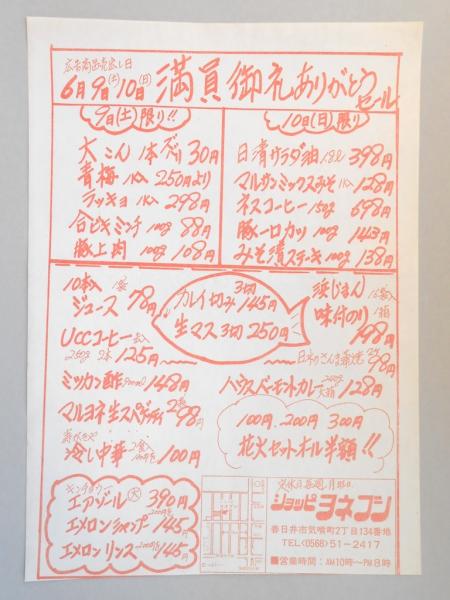 広告商品売出し日
6月9日(土)10日(日) 満員御礼ありがとうセール
9日(土)限り!!
大こん 1本ズバリ 30円
青梅 1K入 250円より
ラッキョ 1K入 298円
合ビキミンチ 100g 88円
豚上肉 100g 108円
10日(日)限り
日清サラダ油 398円
マルサンミックスみそ 1K入 128円
ネスコーヒー 150g 698円
豚一口カツ 100g 143円
みそ漬ステーキ 100g 138円
10本入 1袋
ジュース 78円
UCCコーヒー
250g 2本 125円
ミツカン酢 148円
マルヨネ生スパゲッティ 98円
冷し中華 2食入 100円
カレイ切み 3切 145円
生マス 3切 250円
浜じまん
味付のり
198円
98円
ハウスバーモントカレー 128円
100円.200円 300円
花火セットオール半額!!
キンチョウ
エアゾール(大) 390円
エメロンシャンプー 145円
エメロンリンス 145円
定休日毎週月曜日
ショッピヨネフジ
春日井市気噴町2丁目134番地
TEL<0568>51-2417
■営業時間:AM10時〜PM8時